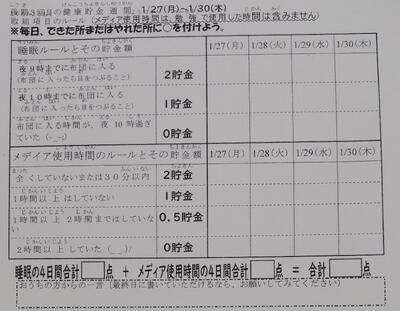 後期3回目の健康貯金週間 1/27(月)~1/30(木)
取組項目のルール(メディア使用時間は、勉強で使用した時間は含みません)
※毎日、できた所またはやれた所に○を付けよう。
睡眠ルールとその貯金額 1/27(月) 1/28(火) 1/29(水) 1/30(木)
夜9時までに布団に入る
(布団に入ったら目をつぶること) 2貯金
夜10時までに布団に入る
(布団に入ったら目をつぶること) 1貯金
布団に入る時間が、夜10時過ぎ
ていた(-_-;) 0貯金
メディア使用時間のルールとその貯金額 1/27(月) 1/28(火) 1/29(水) 1/30(木)
全くしていないまたは30分以内 2貯金
1時間以上はしていない 1貯金
1時間以上2時間まではしていな
い 0.5貯金
2時間以上していた(_ _)/ 0貯金
睡眠の4日間合計 点 + メディア使用時間の4日間合計 点 = 合計 点
おうちの方からの一言(最終日に書いていただけるなら、お願いしてみてください)